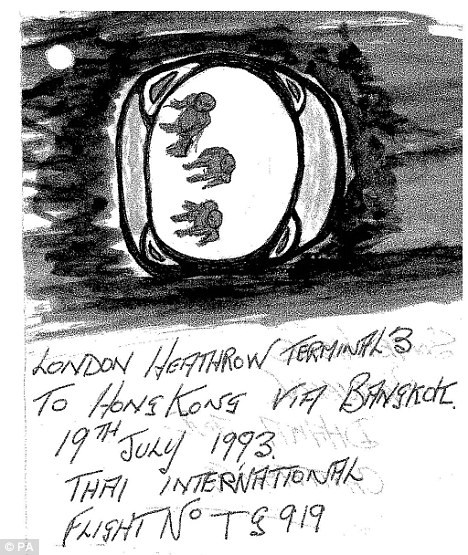 LONDON HEATHROW TERMINAL 3
TO HONG KONG VIA BANGKOK.
19TH JULY 1993.
THAI INTERNATIONAL
FLIGHT No TG 919
© PA